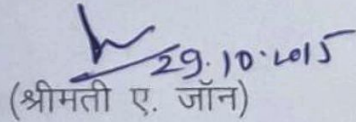 29.10.2015
(श्रीमती ए. जॉन)